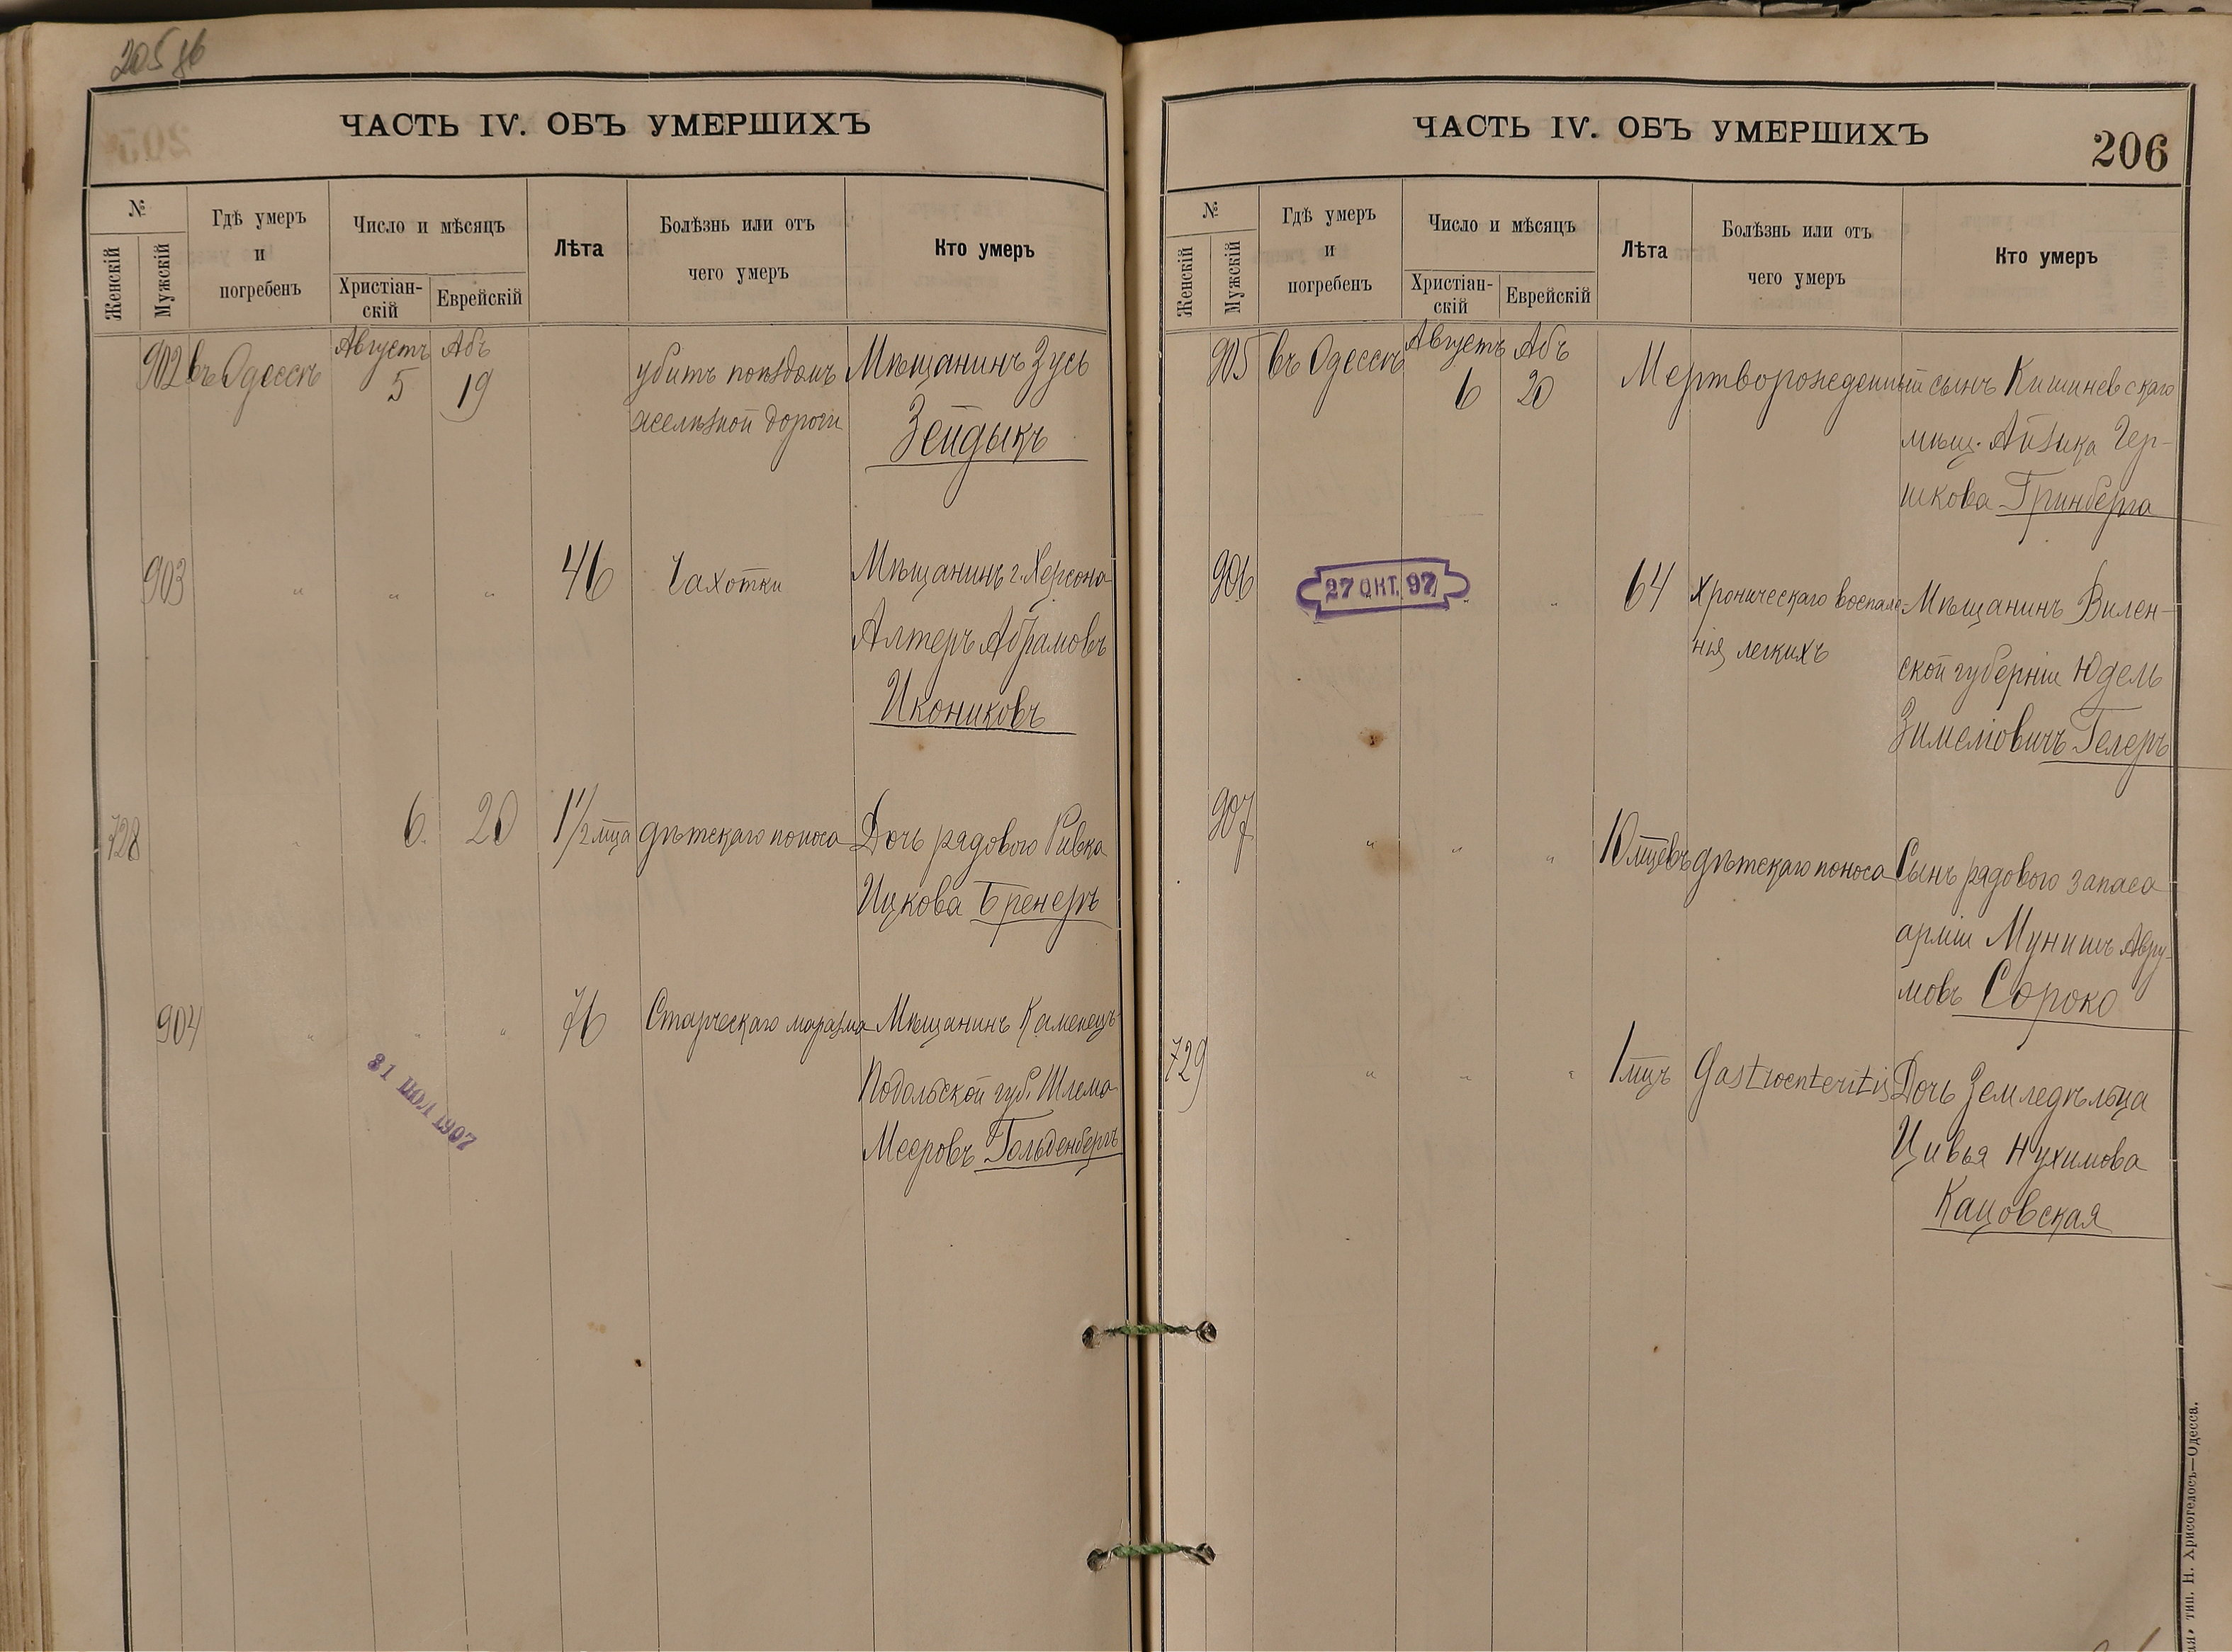 205 об
ЧАСТЬ IV. ОБЪ УМЕРШИХЪ
№
Женскій
Мужскій
Гдѣ умеръ
и
погребенъ
Число и мѣсяцъ
Христіан-
скій
Еврейскій
Лѣта
Болѣзнь или отъ
чего умеръ
Кто умеръ
902 въ Одессѣ Августъ 5 Абъ 19 убитъ поѣздомъ Мѣщанинъ Зусь
желѣзной дороги Зейдыкъ
903 " " " 46 Чахотки Мѣщанинъ г. Херсона
Алтеръ Абрамовъ
Икониковъ
728 " 6. 20 1 1/2 мца дѣтскаго поноса Дочь рядового Ривка
Ицкова Бренеръ
904 " " " 76 Старческаго маразма Мѣщанинъ Каменецъ
Подольской губ. Шлема
Мееровъ Гольденбергъ
31 1907
ЧАСТЬ IV. ОБЪ УМЕРШИХЪ
206
№
Женскій
Мужскій
Гдѣ умеръ
и
погребенъ
Число и мѣсяцъ
Христіан-
скій
Еврейскій
Лѣта
Болѣзнь или отъ
чего умеръ
Кто умеръ
905 въ Одессѣ Августъ 6 Абъ 20 Мертворожденный сынъ Кишиневскаго
мѣщ. Айзика Гер-
шкова Гринберга
906 27 ОКТ. 97 " 64 Хроническаго воспале- Мѣщанинъ Вилен-
нія легкихъ ской губерніи Юдель
Зимелiовичъ Гелеръ
907 " " " 10 мцевъ дѣтскаго поноса Сынъ рядового запаса
арміи Мунишъ Авру-
мовъ Сороко
729 " " " 1 мцъ Gastroenteritis Дочь Земледѣльца
Цивья Нухимова
Кацовская
тип. Н. Хрисогелосъ—Одесса.